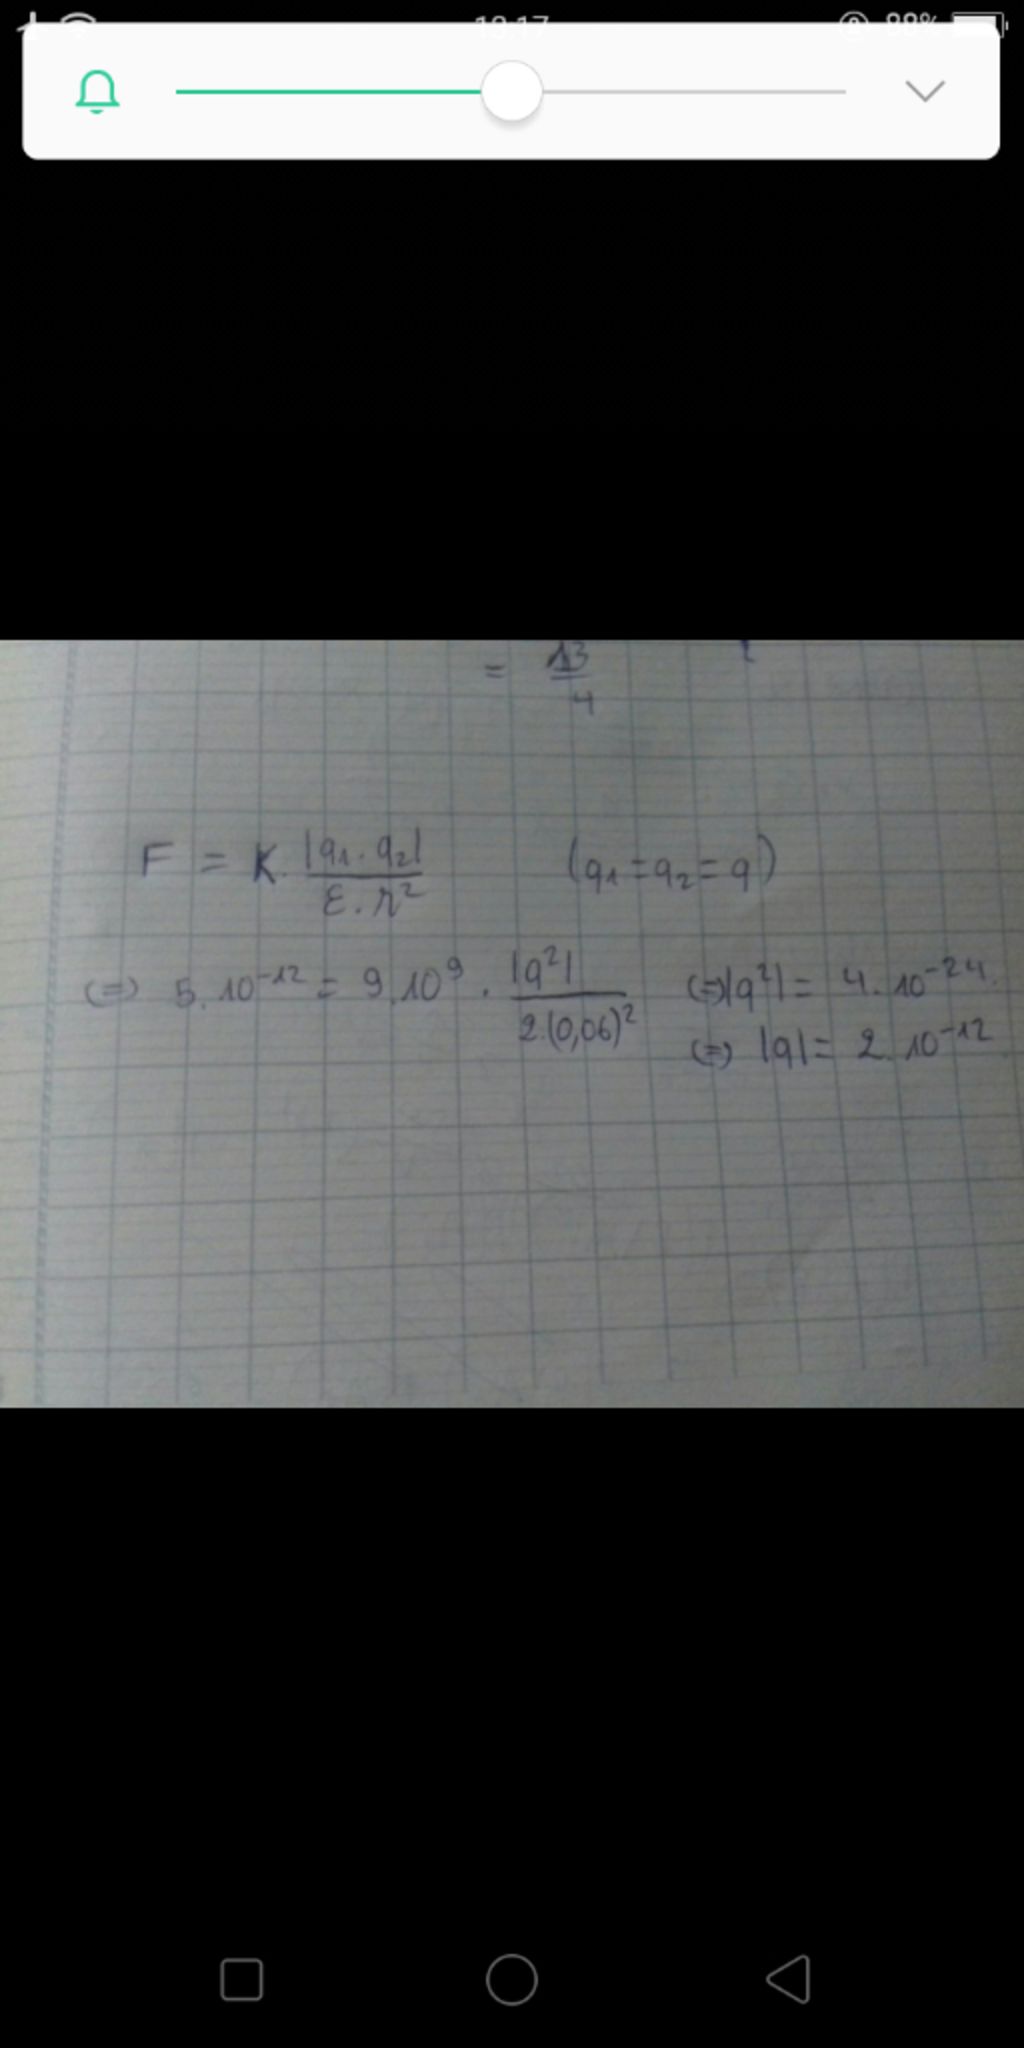 13:17 88%
= 13/4
F = K. |q1. q2| / ε. r² (q1 = q2 = q)
(=) 5. 10⁻¹² = 9. 10⁹ . |q²| / 2.(0,06)² (=) |q²| = 4. 10⁻²⁴.
(=) |q| = 2. 10⁻¹²